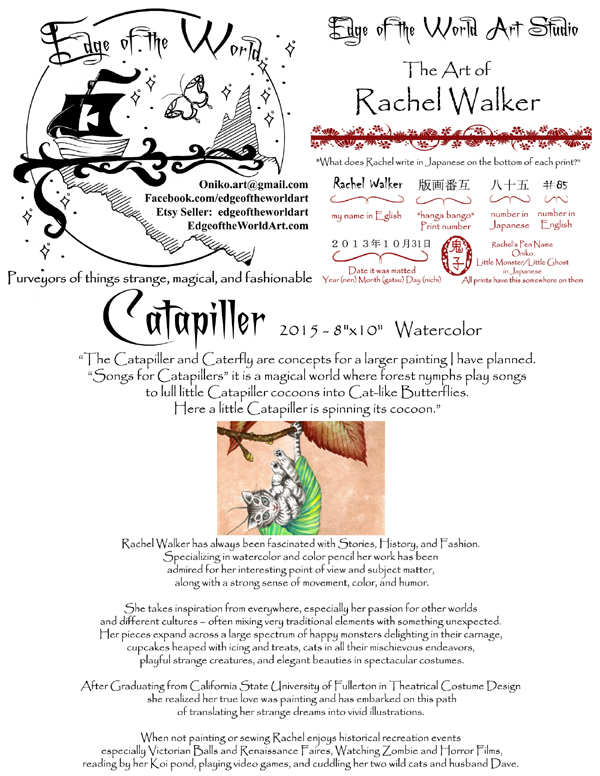 Edge of the World
Oniko.art@gmail.com
Facebook.com/edgeoftheworldart
Etsy Seller: edgeoftheworldart
EdgeoftheWorldArt.com
Purveyors of things strange, magical, and fashionable
Edge of the World Art Studio
The Art of
Rachel Walker
"What does Rachel write in Japanese on the bottom of each print?"
Rachel Walker 版画番互 八十五 # 85
my name in Eglish "hanga bango" Print number number in Japanese number in English
2013年10月31日
鬼子
Date it was matted
Year (nen) Month (gatsu) Day (nichi)
Rachel's Pen Name
Oniko
Little Monster/Little Ghost
in Japanese
All prints have this somewhere on them
Catapiller 2015 - 8"x10" Watercolor
"The Catapiller and Caterfly are concepts for a larger painting I have planned.
"Songs for Catapillers" it is a magical world where forest nymphs play songs
to lull little Catapiller cocoons into Cat-like Butterflies.
Here a little Catapiller is spinning its cocoon."
Rachel Walker has always been fascinated with Stories, History, and Fashion.
Specializing in watercolor and color pencil her work has been
admired for her interesting point of view and subject matter,
along with a strong sense of movement, color, and humor.
She takes inspiration from everywhere, especially her passion for other worlds
and different cultures – often mixing very traditional elements with something unexpected.
Her pieces expand across a large spectrum of happy monsters delighting in their carnage,
cupcakes heaped with icing and treats, cats in all their mischievous endeavors,
playful strange creatures, and elegant beauties in spectacular costumes.
After Graduating from California State University of Fullerton in Theatrical Costume Design
she realized her true love was painting and has embarked on this path
of translating her strange dreams into vivid illustrations.
When not painting or sewing Rachel enjoys historical recreation events
especially Victorian Balls and Renaissance Faires, Watching Zombie and Horror Films,
reading by her Koi pond, playing video games, and cuddling her two wild cats and husband Dave.